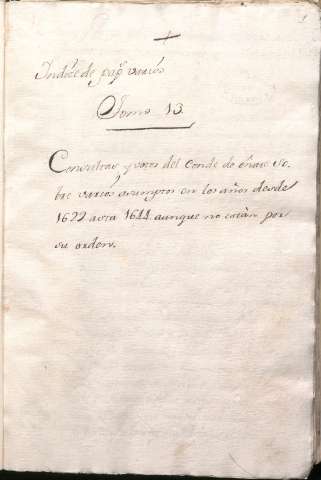 1
+
Indize de pap.s varios
Tomo 13.
Consultas y votos del Conde de so-
bre varios asumptos en los años desde
1622 asta 1644 aunque no están por
su orden.